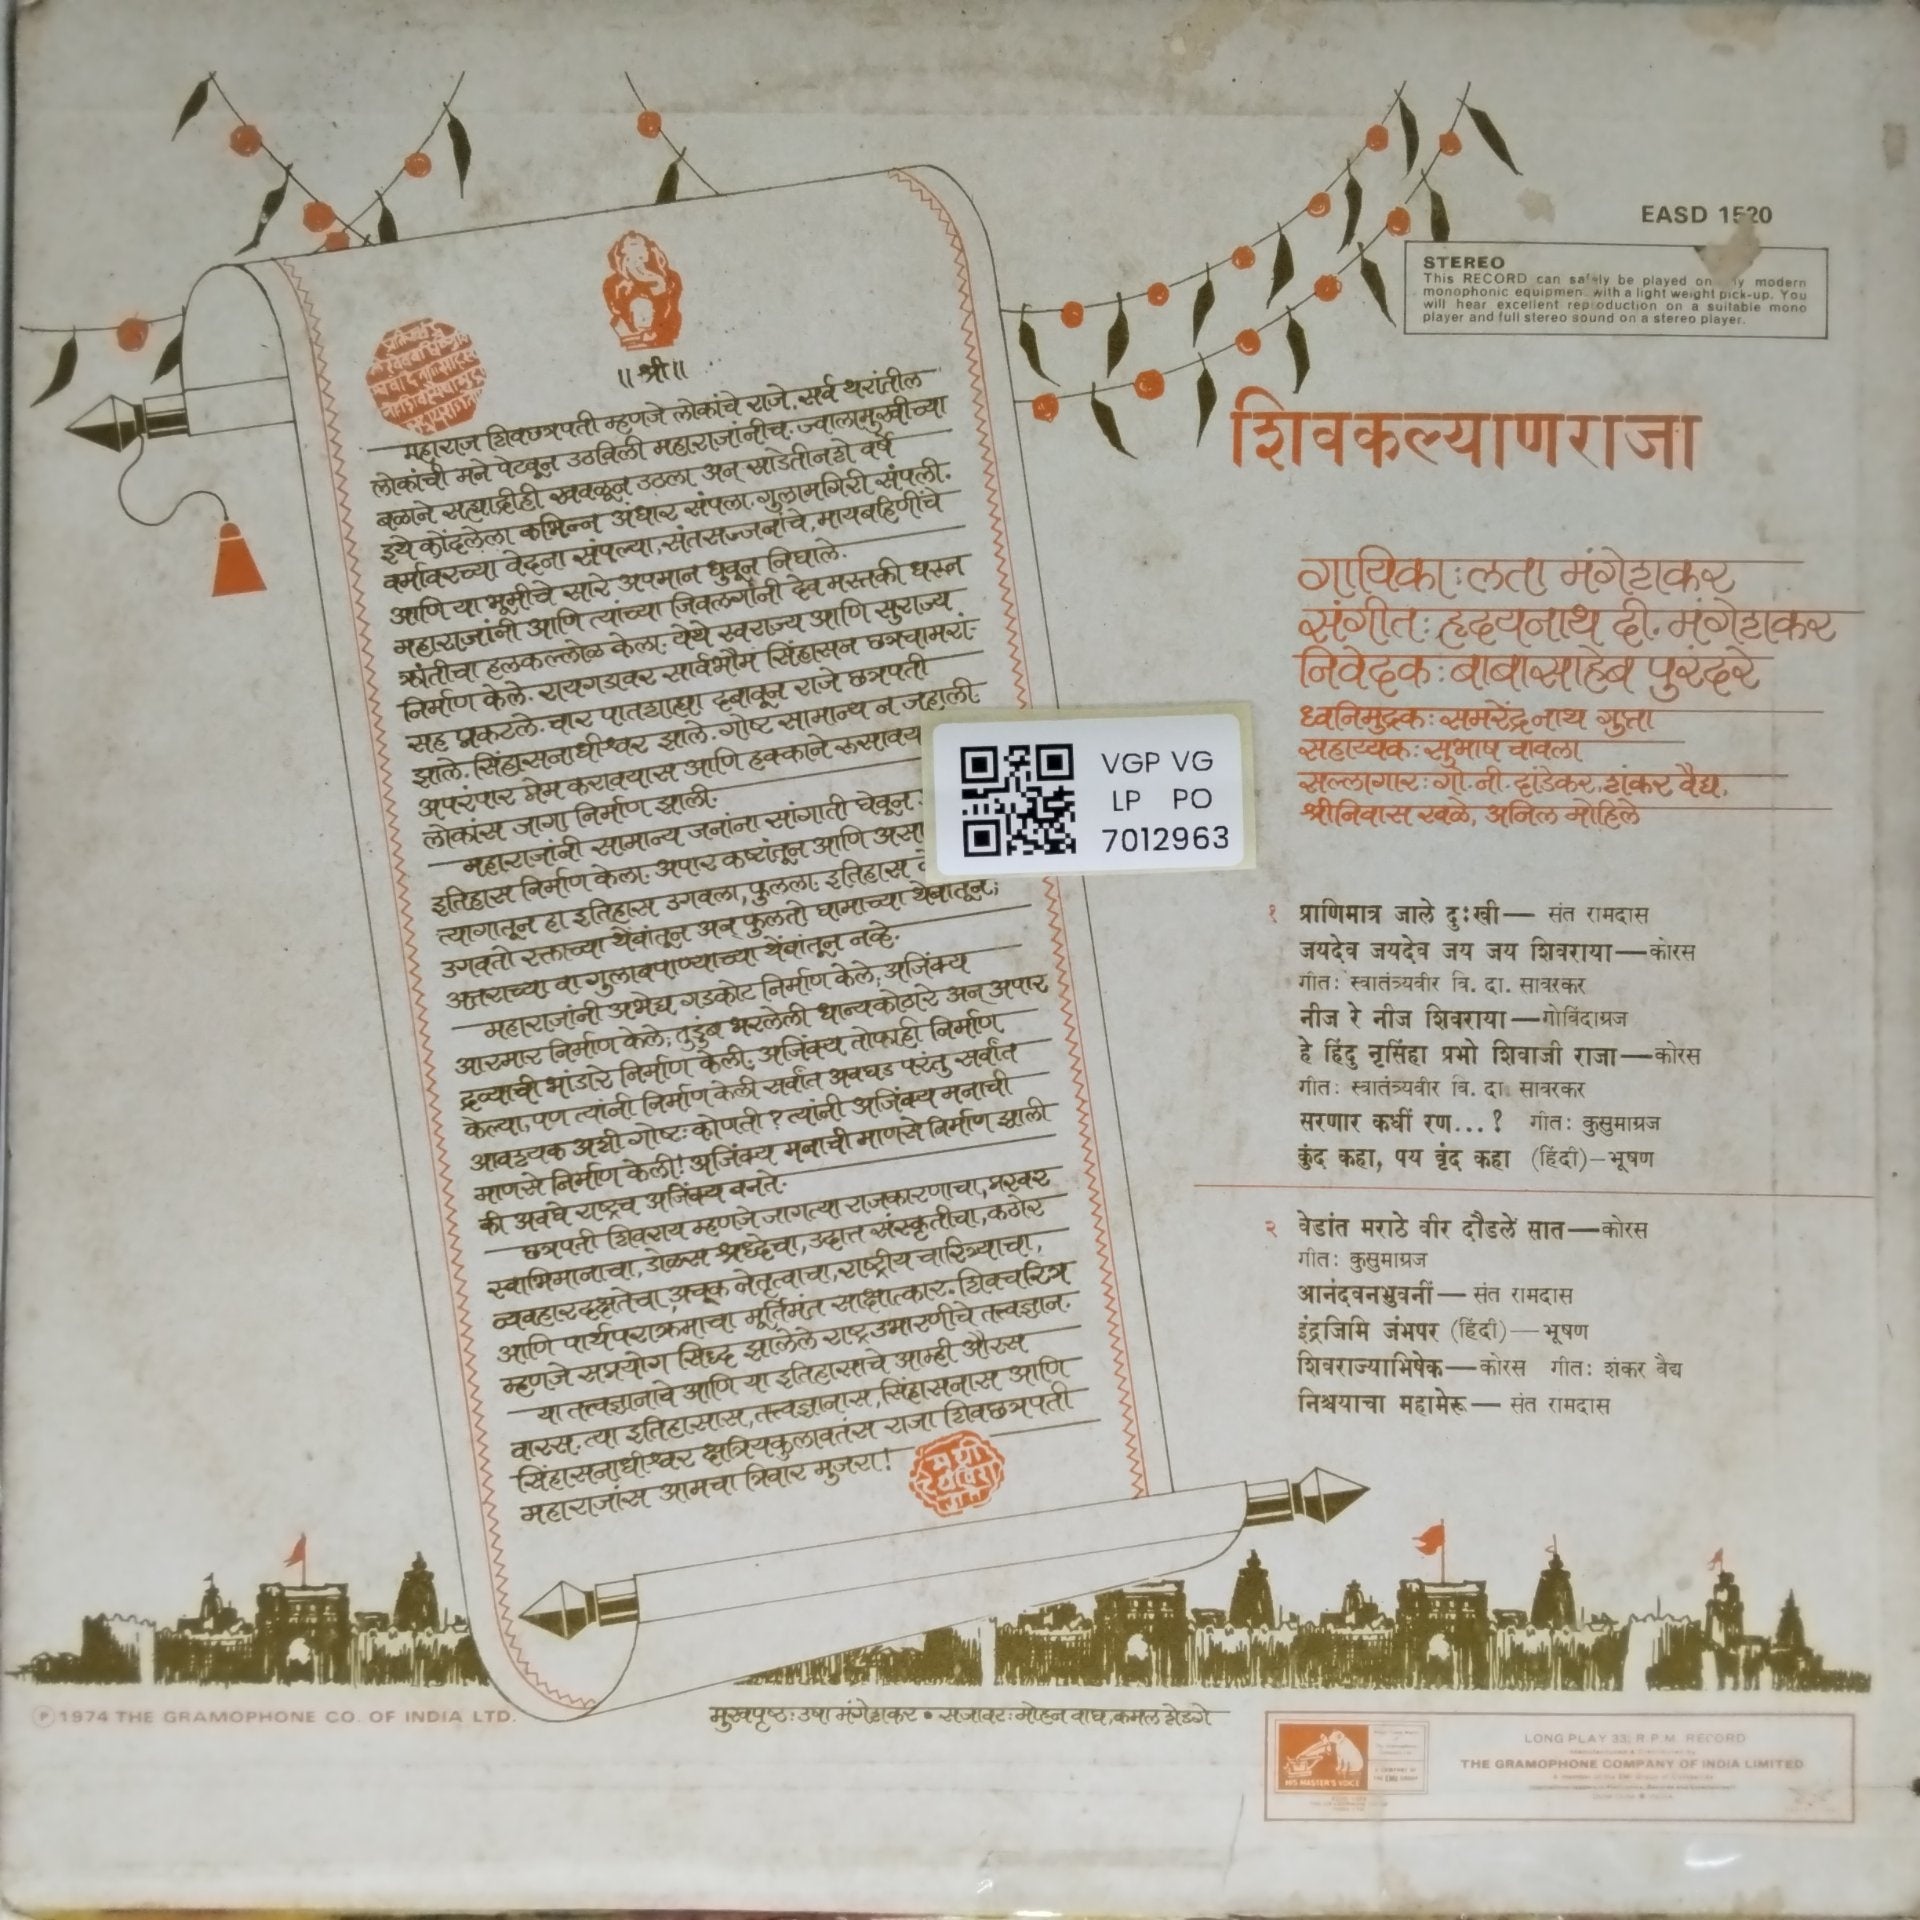 EASD 1520
STEREO
This RECORD can safely be played on any modern
monophonic equipment with a light weight pick-up. You
will hear excellent reproduction on a suitable mono
player and full stereo sound on a stereo player.
॥ श्री ॥
महाराज शिवछत्रपती म्हणजे लोकांचे राजे. सर्व थरांतील
लोकांची मने पेटवून उठविली महाराजांनीच. ज्वालामुखीच्या
बळाने सह्याद्रीही खवळून उठला अन् साडेतीनशे वर्षे
इथे कोंदलेला कभिन्न अंधार संपला. गुलामगिरी संपली.
वर्मावरच्या वेदना संपल्या, संतसज्जनांचे, मायबहिणींचे
आणि या भूमीचे सारे अपमान धुवून निघाले.
महाराजांनी आणि त्यांच्या जिवलगांनी देव मस्तकी धरून
क्रांतीचा हलकल्लोळ केला. येथे स्वराज्य आणि सुराज्य
निर्माण केले. रायगडावर सार्वभौम सिंहासन छत्रचामरां-
सह प्रकटले. चार पातशाह्या दबावून राजे छत्रपती
झाले. सिंहासनाधीश्वर झाले. गोष्ट सामान्य न जहाली.
अपरंपार प्रेम करावयास आणि हक्काने रुसावय
लोकांस जागा निर्माण झाली.
महाराजांनी सामान्य जनांना सांगाती घेवून
इतिहास निर्माण केला. अपार कष्टांतून आणि असा
त्यागातून हा इतिहास उगवला, फुलला. इतिहास
उगवतो रक्ताच्या थेंबांतून अन् फुलतो घामाच्या थेंबांतून;
अत्तराच्या वा गुलाबपाण्याच्या थेंबांतून नव्हे.
महाराजांनी अभेद्य गडकोट निर्माण केले; अजिंक्य
आरमार निर्माण केले; तुडुंब भरलेली धान्यकोठारे अन् अपार
द्रव्याची भांडारे निर्माण केली. अजिंक्य तोफाही निर्माण
केल्या, पण त्यांनी निर्माण केली सर्वांत अवघड परंतु सर्वांत
आवश्यक अशी गोष्ट: कोणती? त्यांनी अजिंक्य मनाची
माणसे निर्माण केली! अजिंक्य मनाची माणसे निर्माण झाली
की अवघे राष्ट्रच अजिंक्य बनते.
छत्रपती शिवराय म्हणजे जागत्या राजकारणाचा, प्रखर
स्वाभिमानाचा, डोळस श्रध्देचा, उद्दात्त संस्कृतीचा, कठोर
व्यवहारदक्षतेचा, अचूक नेतृत्वाचा, राष्ट्रीय चारित्र्याचा,
आणि पार्थपराक्रमाचा मूर्तिमंत साक्षात्कार. शिवचरित्र
म्हणजे सप्रयोग सिध्द झालेले राष्ट्रउभारणीचे तत्त्वज्ञान.
या तत्त्वज्ञानाचे आणि या इतिहासाचे आम्ही औरस
वारस. त्या इतिहासास, तत्त्वज्ञानास, सिंहासनास आणि
सिंहासनाधीश्वर क्षत्रियकुलावतंस राजा शिवछत्रपती
महाराजांस आमचा त्रिवार मुजरा!
VGP VG
LP PO
7012963
शिवकल्याणराजा
गायिका: लता मंगेशकर
संगीत: हृदयनाथ दी. मंगेशकर
निवेदक: बाबासाहेब पुरंदरे
ध्वनिमुद्रक: समरेंद्रनाथ गुप्ता
सहाय्यक: सुभाष चावला
सल्लागार: गो. नी. दांडेकर, शंकर वैद्य,
श्रीनिवास खळे, अनिल मोहिले
१ प्राणिमात्र जाले दुःखी — संत रामदास
जयदेव जयदेव जय जय शिवराया — कोरस
गीत: स्वातंत्र्यवीर वि. दा. सावरकर
नीज रे नीज शिवराया — गोविंदाग्रज
हे हिंदु नृसिंहा प्रभो शिवाजी राजा — कोरस
गीत: स्वातंत्र्यवीर वि. दा. सावरकर
सरणार कधीं रण...? गीत: कुसुमाग्रज
कुंद कहा, पय वृंद कहा (हिंदी) – भूषण
२ वेडांत मराठे वीर दौडले सात — कोरस
गीत: कुसुमाग्रज
आनंदवनभुवनीं — संत रामदास
इंद्रजिमि जंभपर (हिंदी) — भूषण
शिवराज्याभिषेक — कोरस गीत: शंकर वैद्य
निश्चयाचा महामेरू — संत रामदास
Ⓟ 1974 THE GRAMOPHONE CO. OF INDIA LTD.
मुखपृष्ठ: उषा मंगेशकर • सजावट: मोहन वाघ, कमल शेडगे
HIS MASTER'S VOICE
LONG PLAY 33⅓ R.P.M. RECORD
THE GRAMOPHONE COMPANY OF INDIA LIMITED